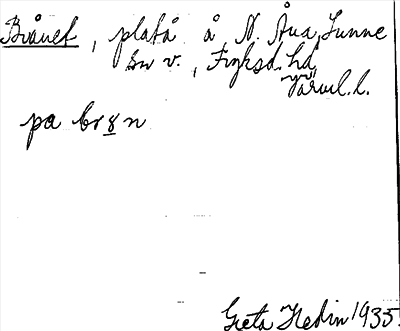 Brånet, platå å N. Åna, Sunne
sn v., Fryksd. hd,
Värml. l.
pa br8n
Greta Hedin 1935